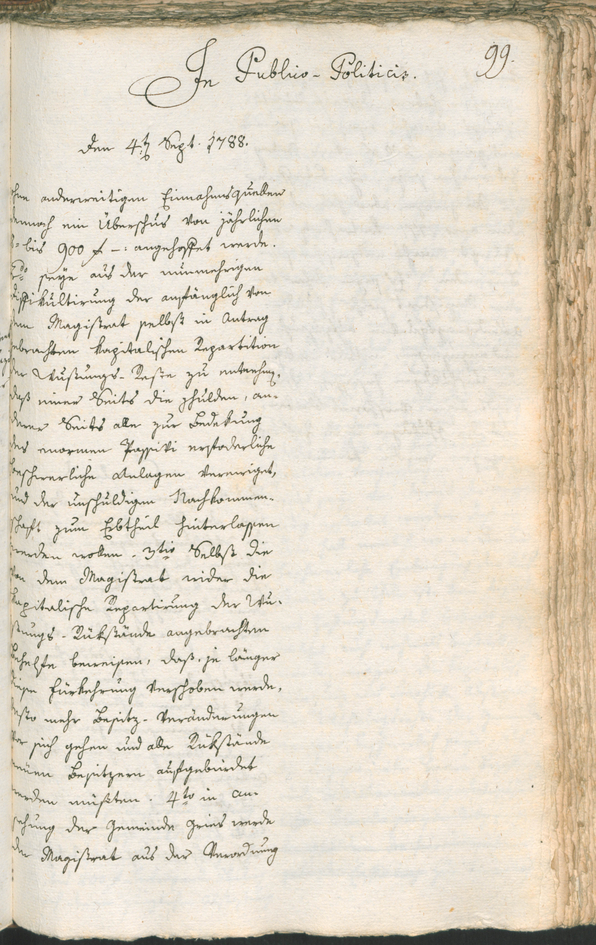 In Publico-Politicis.
99.
Den 4t Sept. 1788.
ohne anderweitigen Einnahmsquellen
dennoch ein Überschus von jährlichen
bis 900 f –: angehoffet werde.
seye aus der nunmehrigen
Diffikultirung der anfänglich von
dem Magistrat selbst in Antrag
gebrachten kapitalischen Repartition
der Wustungs-Reste zu entnehm,
daß einer Seits die Schulden, an-
derer Seits alle zur Bedekung
des enormen Passivi erfoderliche
beschwerliche Anlagen vereiniget,
und der unschuldigen Nachkommen-
schaft zum Erbtheil hinterlassen
werden wollen. 3tio Selbst die
von dem Magistrat wider die
kapitalische Repartirung der Wu-
stungs-Rükstände angebrachten
Behelfe beweisen, daß, je länger
diese Fürkehrung verschoben werde,
desto mehr Besitz-Veränderungen
vor sich gehen und alle Rükstände
neuen Besitzern aufgebürdet
werden müßten. 4to in An-
sehung der Gemeinde Gries werde
der Magistrat aus der Verordnung